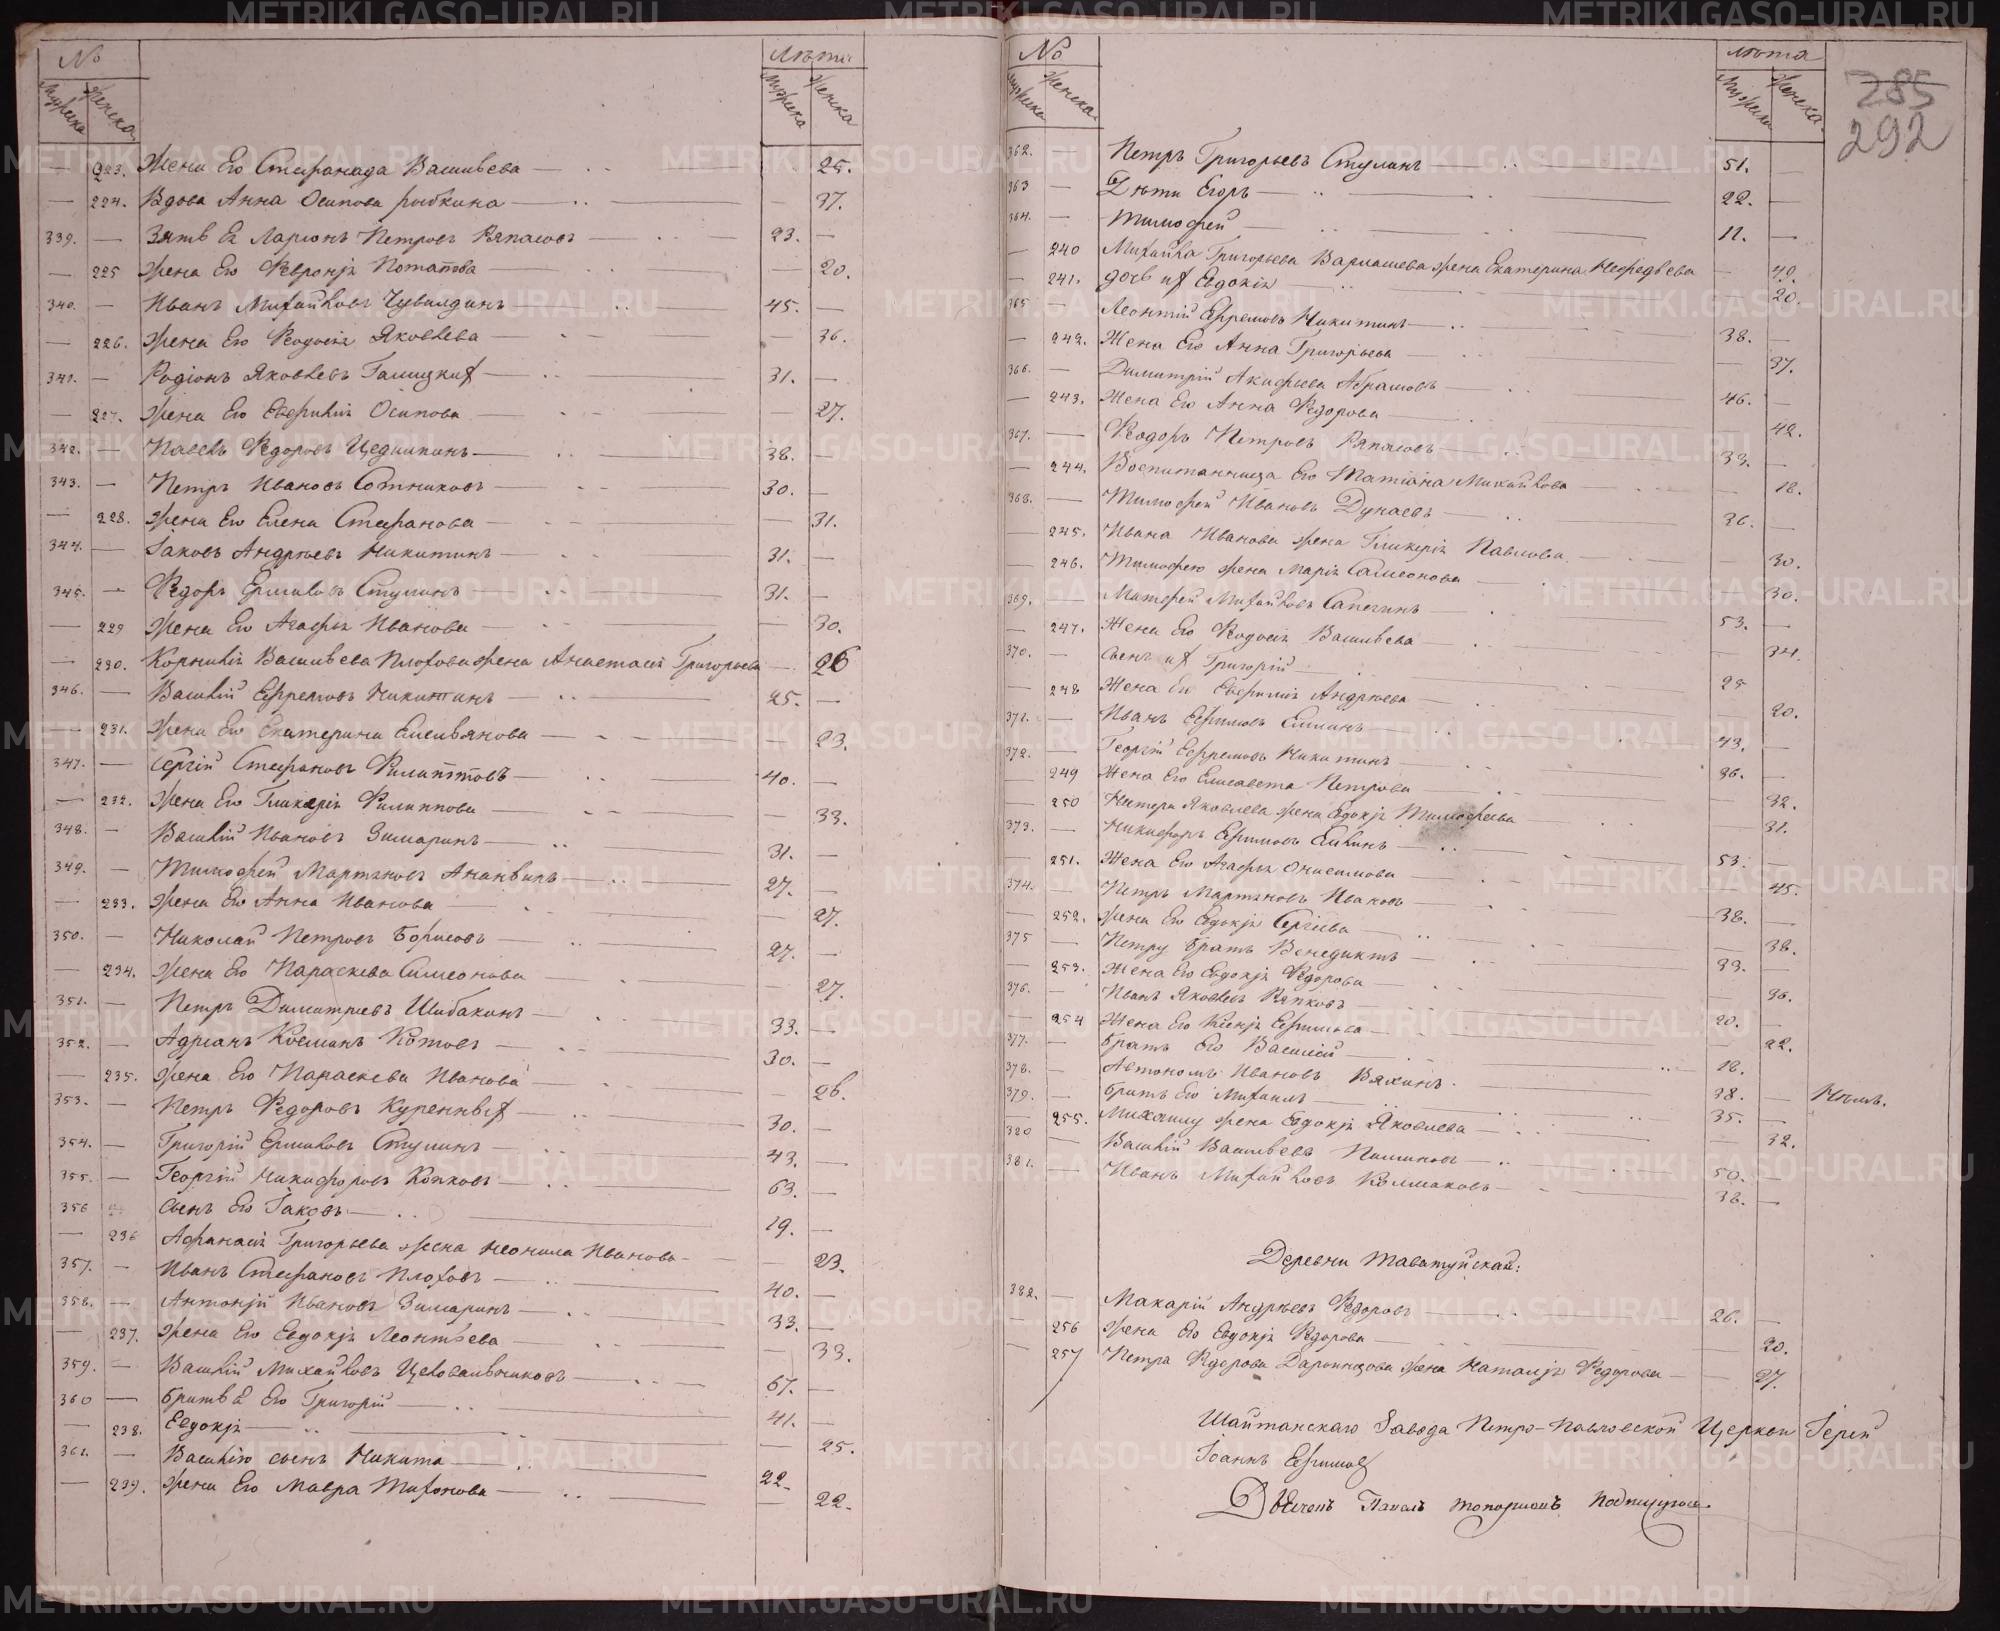 № Лѣта
Мужеска Женска Мужеска Женска
— 223. Жена Его Стефанида Васильева — 25.
— 224. Вдова Анна Осипова Рыбкина — 37.
339. — Зять Ея Ларіонъ Петровъ Ряпасовъ — 23. —
— 225 Жена Его Февронія Потапова — 20.
340. — Иванъ Михайловъ Чувилдинъ — 45. —
— 226. Жена Его Ѳеодосія Яковлева — 36.
341. — Родіонъ Яковлевъ Галицких — 31. —
— 227. Жена Его Евфимія Осипова — 27.
342. — Павелъ Ѳедоровъ Цедилкинъ — 38. —
343. — Петръ Ивановъ Сотниковъ — 30. —
— 228. Жена Его Елена Стефанова — 31.
344. — Іаковъ Андреевъ Никитинъ — 31. —
345. — Ѳедоръ Ермиловъ Стулинъ — 31. —
— 229 Жена Его Агафья Иванова — 30.
— 230. Корнилія Васильева Плохова жена Анастасія Григорьева — 26
346. — Василій Ефремовъ Никитинъ — 25. —
— 231. Жена Его Екатерина Емельянова — 23.
347. — Сергій Стефановъ Филиповъ — 40. —
— 232. Жена Его Гликерія Филиппова — 33.
348. — Василій Ивановъ Зимаринъ — 31. —
349. — Тимофей Мартыновъ Ананьинъ — 27. —
— 233. Жена Его Анна Иванова — 27.
350. — Николай Петровъ Борисовъ — 27. —
— 234. Жена Его Параскева Симеонова — 27.
351. — Петръ Димитріевъ Шибакинъ — 33. —
352. — Адріанъ Косминъ Котовъ — 30. —
— 235. Жена Его Параскева Иванова — 26.
353. — Петръ Ѳедоровъ Куренных — 30. —
354. — Григорій Ермиловъ Стулинъ — 43. —
355. — Георгій Никифоровъ Копковъ — 63. —
356 Сынъ Его Іаковъ — 19. —
— 236 Афанасія Григорьева жена Неонила Иванова — 23.
357. — Иванъ Стефановъ Плоховъ — 40. —
358. — Антоній Ивановъ Зимаринъ — 33. —
— 237. Жена Его Евдокія Леонтьева — 33.
359. — Василій Михайловъ Целовальниковъ — 67. —
360 — Братъ Его Григорій — 41. —
— 238. Евдокія — 25.
361. — Василію сынъ Никита — 22. —
— 239. Жена Его Мавра Тихонова — 22.
№ лѣта
Мужеска Женска Мужеска Женска
285
292
362. — Петръ Григорьевъ Стулинъ — 51. —
363 — Дѣти Егоръ — 22. —
364. — Тимофей — 11. —
— 240 Михайла Григорьева Варлашева жена Екатерина Мефодьева — 40.
— 241. дочь их Евдокія — 20.
365 — Леонтій Ефремовъ Никитинъ — 38. —
— 242. Жена Его Анна Григорьева — 37.
366. — Димитрій Акифіева Абрамовъ — 46. —
— 243. Жена Его Анна Ѳедорова — 42.
367. — Ѳеодоръ Петровъ Ряпасовъ — 33. —
— 244. Воспитанница Его Татіана Михайлова — 18.
368. — Тимофей Ивановъ Дунаевъ — 36. —
— 245. Ивана Иванова жена Гликерія Павлова — 30.
— 246. Тимофею жена Марія Самсонова — 30.
369. — Матфей Михайловъ Сапегинъ — 53. —
— 247. Жена Его Ѳеодосія Васильева — 34.
370. — Сынъ их Григорій — 25
— 248 Жена Его Евфимія Андреева — 20.
371. — Иванъ Ефимовъ Силинъ — 43. —
372. — Георгій Ефремовъ Никитинъ — 36. —
— 249 Жена Его Елисавета Петрова — 32.
— 250 Нестера Яковлева жена Евдокія Тимофеева — 31.
373. — Никифоръ Ефимовъ Силинъ — 53. —
— 251. Жена Его Агафья Онисимова — 45.
374. — Петръ Мартыновъ Ивановъ — 38. —
— 252. Жена Его Евдокія Сергіева — 38.
375 — Петру братъ Венедиктъ — 33. —
— 253. Жена Его Евдокія Ѳедорова — 36.
376. — Иванъ Яковлевъ Ряпковъ — 20. —
— 254 Жена Его Ксенія Ефимова — 22.
377. — Братъ Его Василій — 18. —
378. — Автономъ Ивановъ Вяхинъ — 38. — Нѣмъ.
379. — Братъ Его Михаилъ — 35. —
— 255. Михаилу жена Евдокія Яковлева — 32.
320 — Василій Васильевъ Пилиновъ — 50. —
381. — Иванъ Михайловъ Колмаковъ — 38. —
Деревни Таватуйской:
382. — Макарій Андреевъ Ѳедоровъ — 26. —
— 256 Жена Его Евдокія Ѳедорова — 20.
— 257 Петра Ѳедорова Даромцова жена Наталія Ѳедорова — 27.
Шайтанскаго Завода Петро-Павловской Церкви Іерей
Іоаннъ Ефимов
Дьячекъ Павелъ Топорковъ подписуюсь